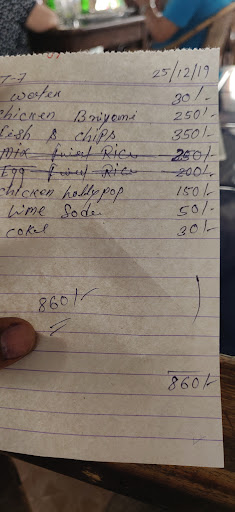 T-7 25/12/19
water 30/-
chicken Briyani 250/-
Fish & chips 350/-
Mix fried Rice 250/-
Egg fried Rice 200/-
chicken lollypop 150/-
Lime Soda 50/-
coke 30/-
860/-
860/-